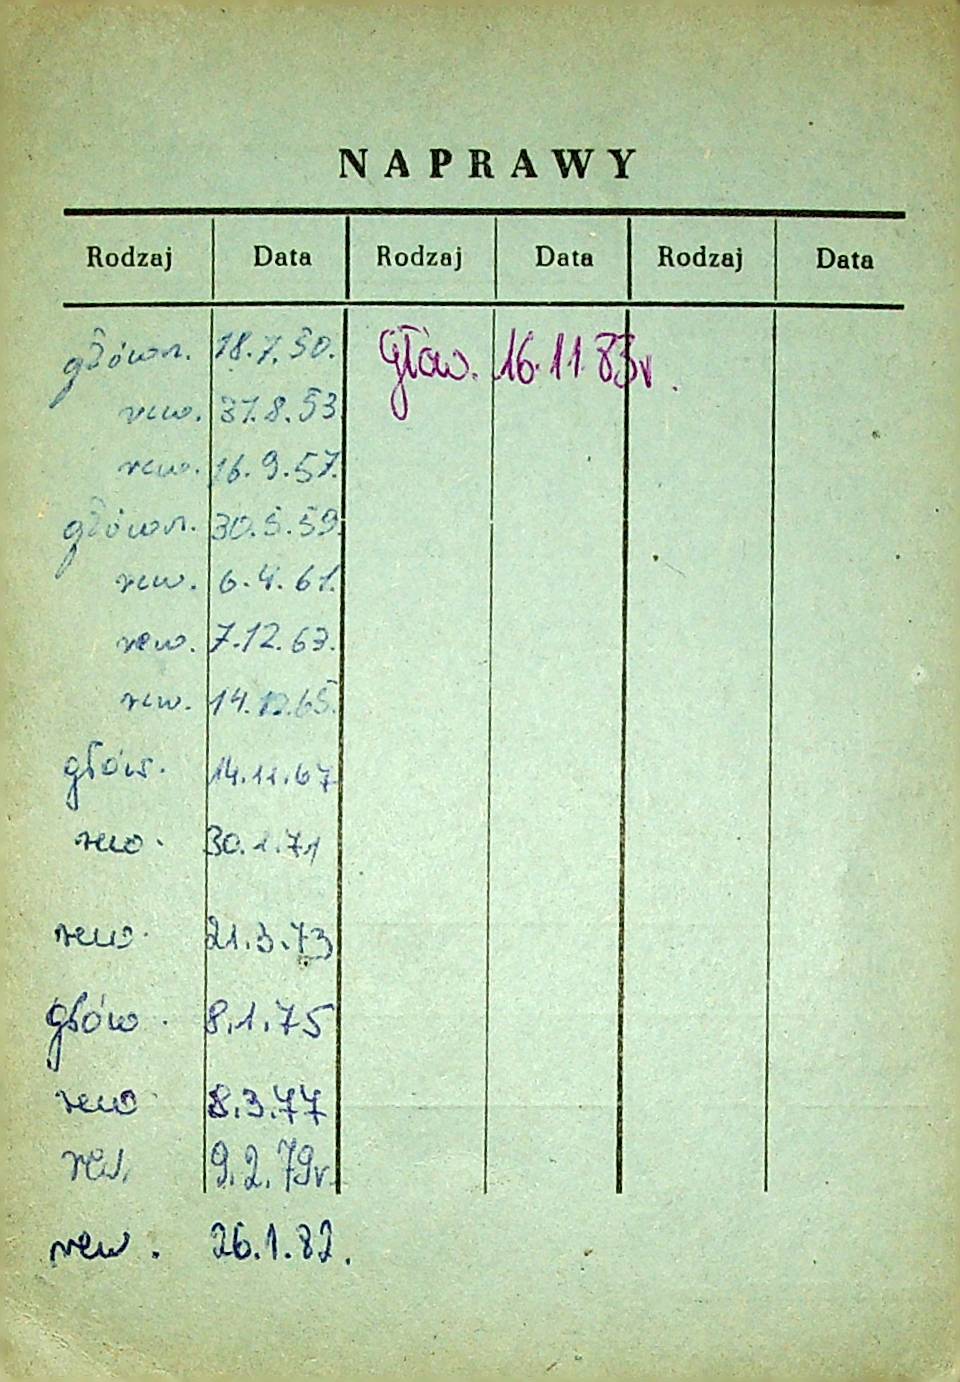 NAPRAWY
Rodzaj Data Rodzaj Data Rodzaj Data
główn. 18.7.50. Głów. 16.11.83r.
rew. 31.8.53
rew. 16.9.57.
główn. 30.5.59.
rew. 6.4.61.
rew. 7.12.63.
rew. 14.12.65.
głów. 14.11.67
rew. 30.1.71
rew. 21.3.73
głów. 8.1.75
rew. 8.3.77
rew. 9.2.79r.
rew. 26.1.82.